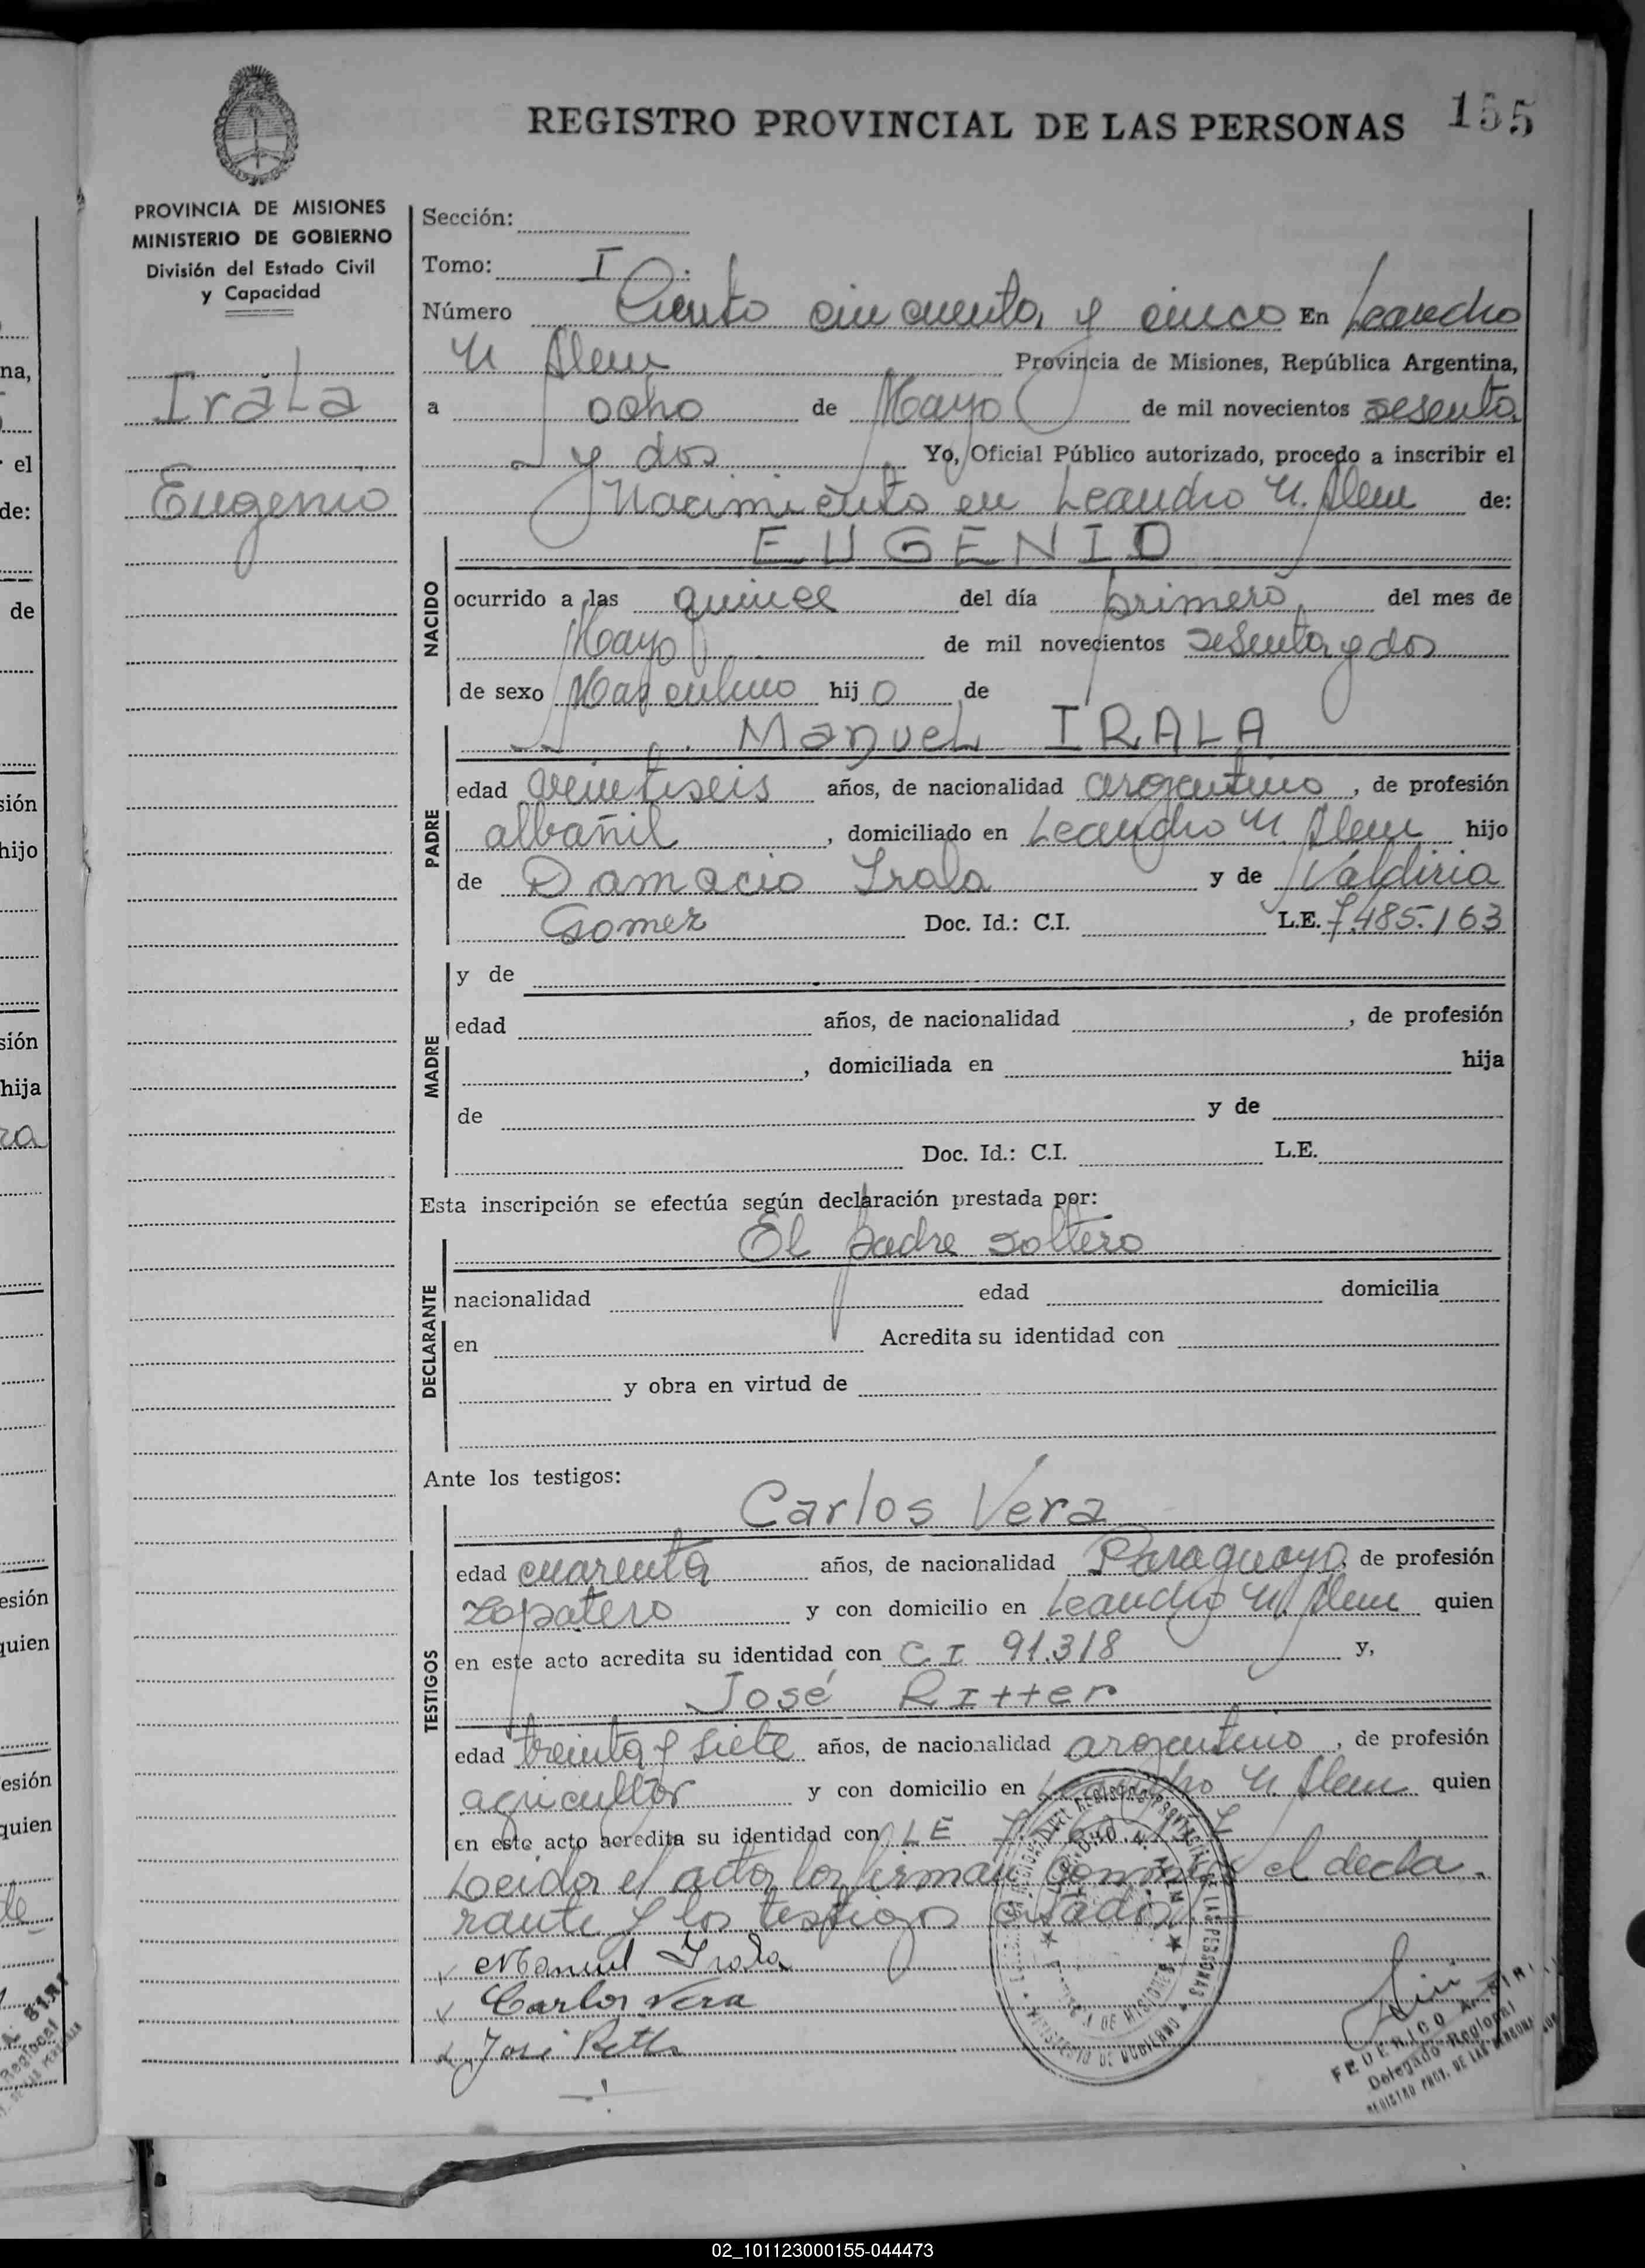 REGISTRO PROVINCIAL DE LAS PERSONAS 155
PROVINCIA DE MISIONES
MINISTERIO DE GOBIERNO
División del Estado Civil
y Capacidad
Irala
Eugenio
Sección:
Tomo: I
Número Ciento cincuenta y cinco En Leandro
N Alem Provincia de Misiones, República Argentina,
a ocho de Mayo de mil novecientos sesenta
y dos Yo, Oficial Público autorizado, procedo a inscribir el
Nacimiento en Leandro N. Alem de:
NACIDO
EUGENIO
ocurrido a las quince del día primero del mes de
Mayo de mil novecientos sesenta y dos
de sexo Masculino hijo de
PADRE
Manuel IRALA
edad veintiseis años, de nacionalidad argentino, de profesión
albañil, domiciliado en Leandro N. Alem hijo
de Damacio Irala y de Valdiria
Gomez Doc. Id.: C.I. L.E. 7.485.163
MADRE
y de
edad años, de nacionalidad , de profesión
, domiciliada en hija
de y de
Doc. Id.: C.I. L.E.
Esta inscripción se efectúa según declaración prestada por:
DECLARANTE
El padre soltero
nacionalidad edad domicilia
en Acredita su identidad con
y obra en virtud de
Ante los testigos:
TESTIGOS
Carlos Vera
edad cuarenta años, de nacionalidad Paraguayo, de profesión
zapatero y con domicilio en Leandro N. Alem quien
en este acto acredita su identidad con C I 91.318 y,
José Ritter
edad treinta y siete años, de nacionalidad argentino, de profesión
agricultor y con domicilio en Leandro N. Alem quien
en este acto acredita su identidad con LE
Leida el acta, la firman conmigo el decla
rante y los testigos citados
Manuel Irala
Carlos Vera
José Ritter
FEDERICO A. SIRI
Delegado Regional
REGISTRO PROV. DE LAS PERSONAS
02_101123000155-044473